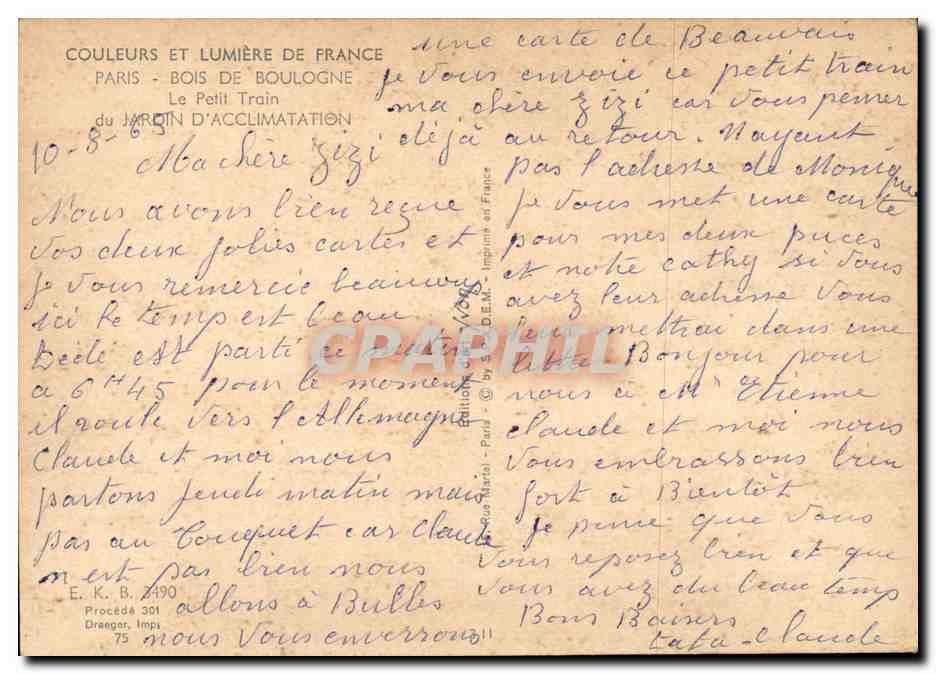 COULEURS ET LUMIÈRE DE FRANCE
PARIS - BOIS DE BOULOGNE
Le Petit Train
du JARDIN D'ACCLIMATATION
10-8-65
Ma chère Zizi
Nous avons bien reçue
vos deux jolies cartes et
je vous remercie beaucoup
ici le temp est beau
Dédé est parti ce matin
a 6H45 pour le moment
il roule vers l'Allemagne
Claude et moi nous
partons jeudi matin mais
pas au Touquet car Claude
n'est pas bien nous
allons à Bulles
nous vous enverrons
une carte de Beauvais
je vous envoie ce petit train
ma chère Zizi car vous penser
déjà au retour. Nayant
pas l'adresse de Monique
je vous met une carte
pour mes deux puces
et notre cathy si vous
avez leur adresse vous
leur mettrai dans une
lettre Bonjour pour
nous a Mr Etienne
Claude et moi nous
vous embrassons bien
fort à Bientôt
je pense que vous
vous reposez bien et que
vous avez du beau temp
Bons Baisers
tata - Claude
Editions d'art
Rue Martel - Paris - © by S.O.D.E.M. - Imprimé en France
E. K. B. 3490
Procédé 301
Draeger, Imp.
75
11
CPAPHIL